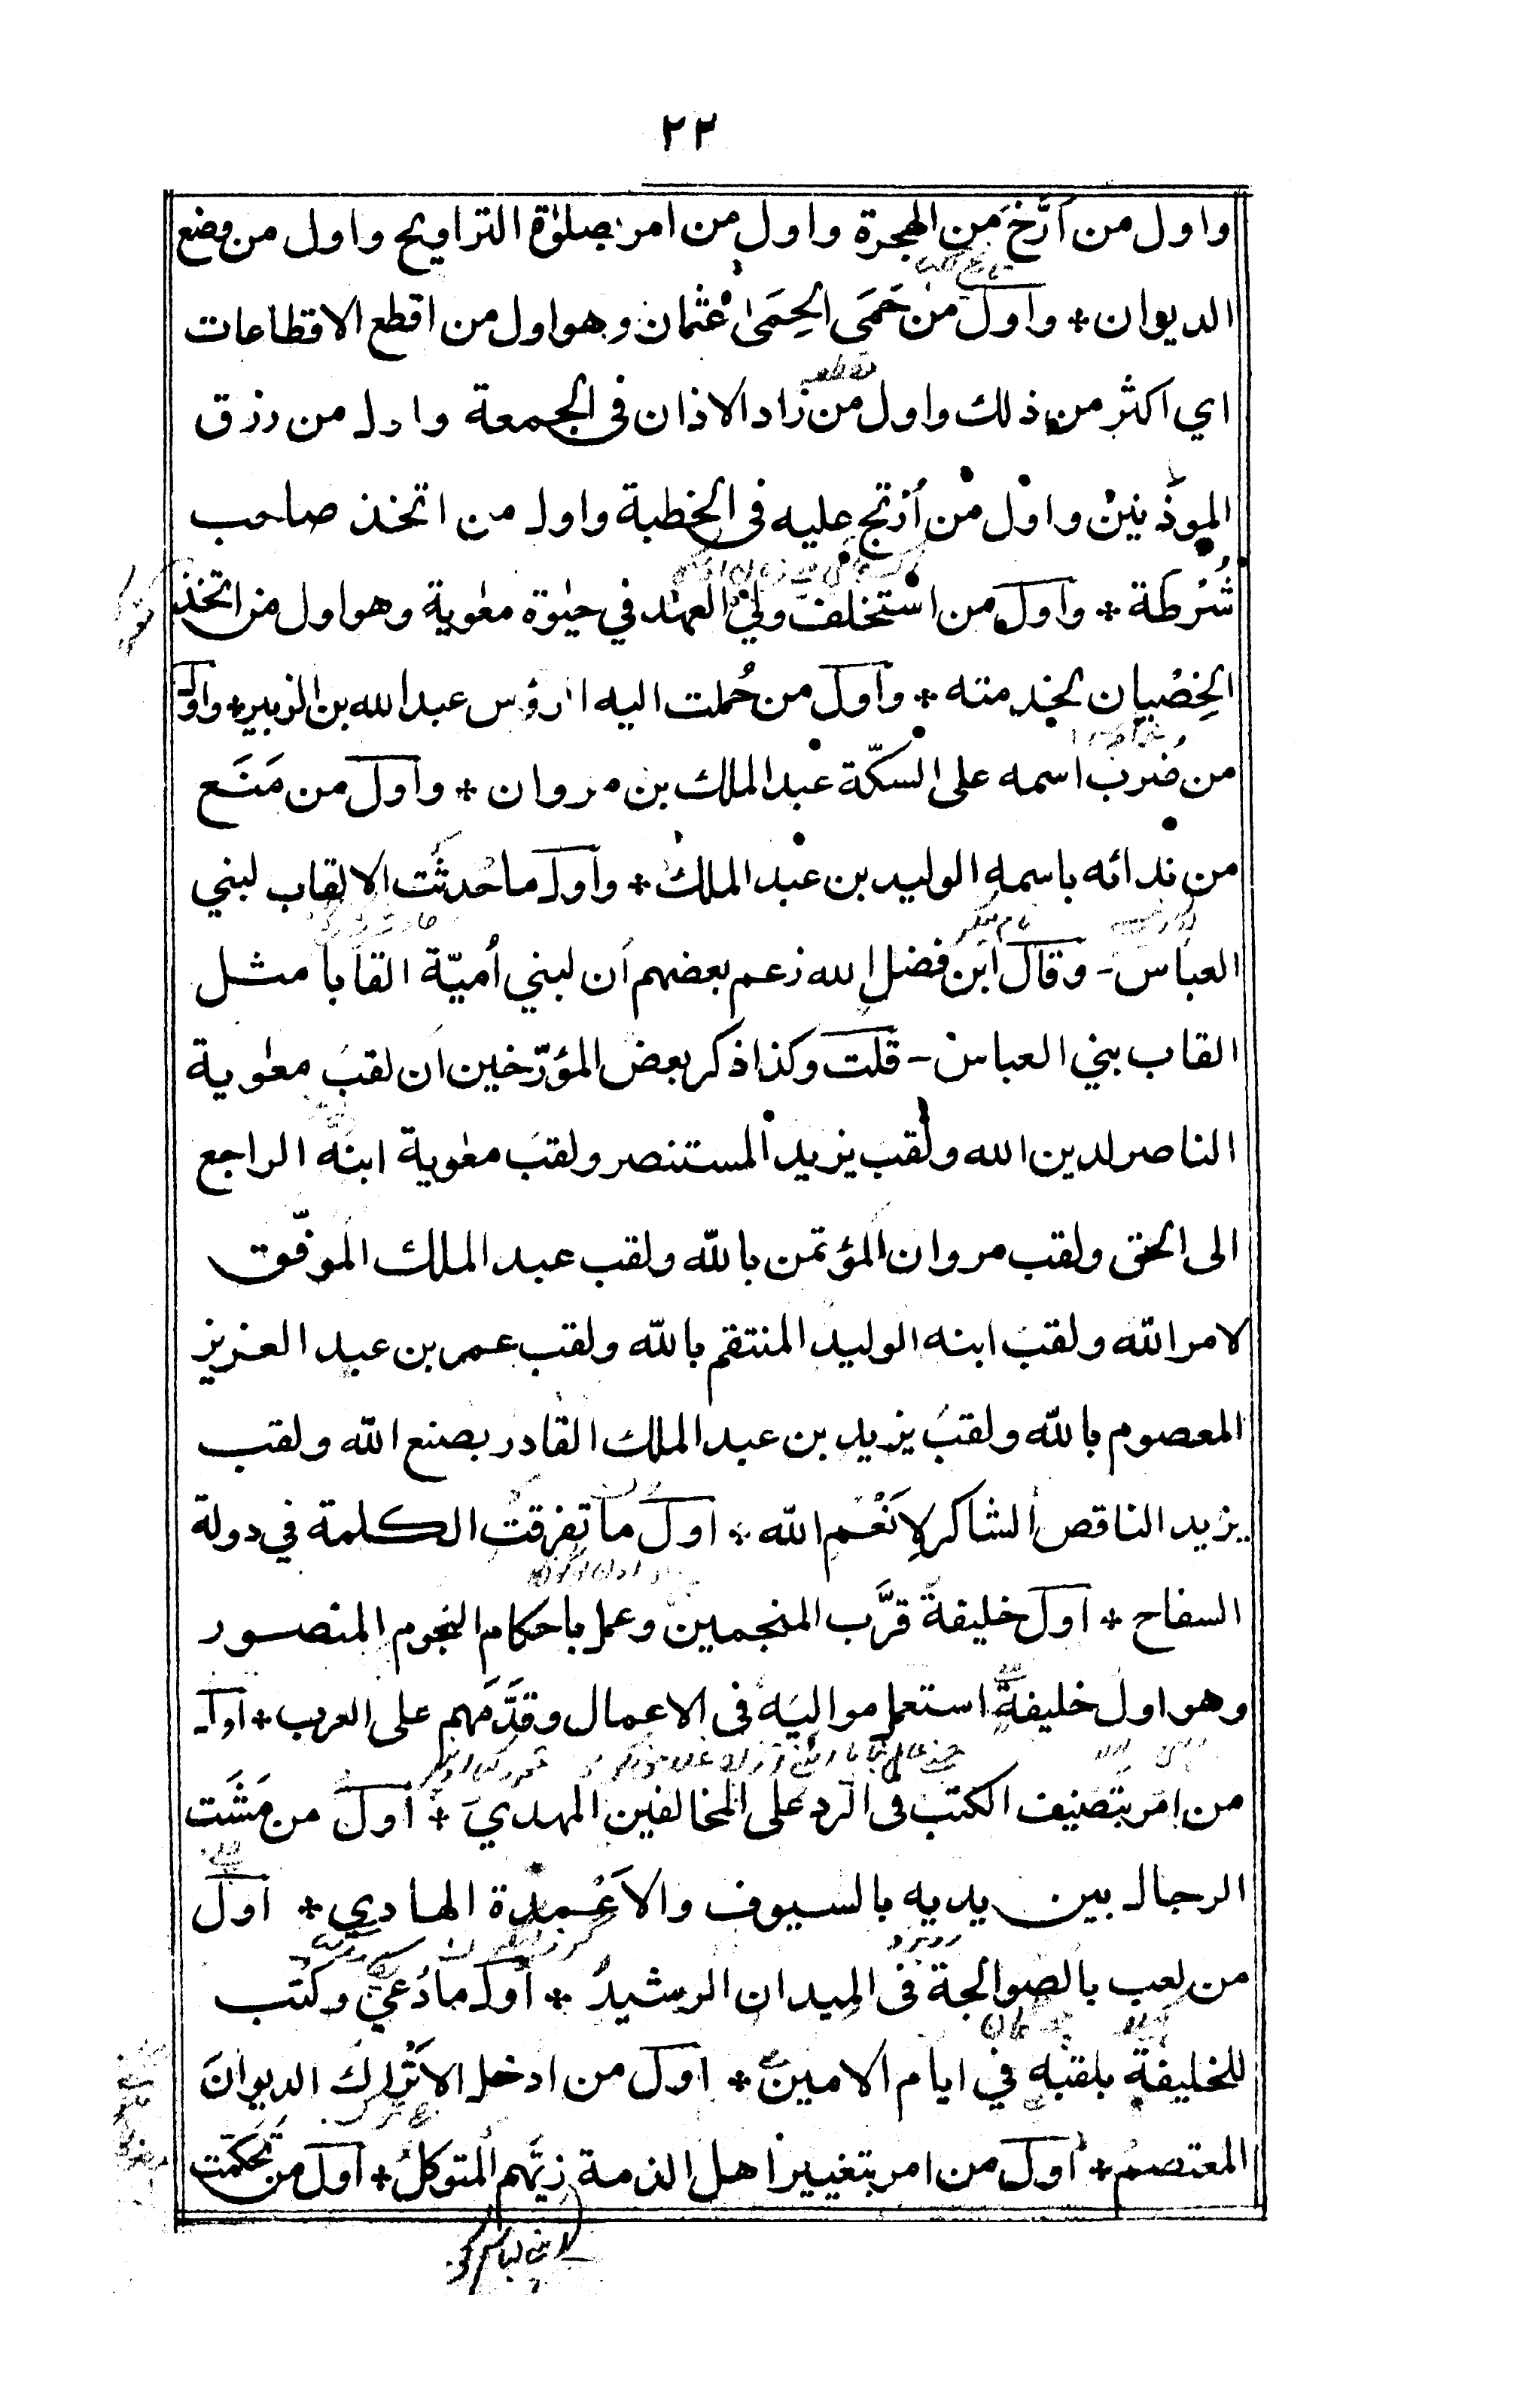 ٢٣
واول من اَرَّخَ من الهجرة واول من امر بصلوٰة التراويح واول من وضع
الديوان * واول من حَمَى الحِمَىٰ عثمان وهو اول من اقطع الاقطاعات
اي اكثر من ذلك واول من زاد الاذان فى الجمعة واول من رزق
الموذنين واول من اُرْتج عليه فى الخطبة واول من اتخذ صاحب
شُرْطَة * واول من استخلف ولي العهد في حيٰوة معٰوية وهو اول من اتخذ
الخِصْيان لخدمته * واول من حُملت اليه الرؤس عبد الله بن الزبير * واول
من ضُرب اسمه على السكّة عبد الملك بن مروان * واول من مَنَع
من ندائه باسمه الوليد بن عبد الملك * واول ما حُدثت الالقاب لبني
العباس - وقال ابن فضل الله زعم بعضهم ان لبني اُميّة القابا مثل
القاب بني العباس - قلت وكذا ذكر بعض المؤرّخين ان لقب معٰوية
الناصر لدين الله ولقب يزيد المستنصر ولقب معٰوية ابنه الراجع
الى الحق ولقب مروان المؤتمن بالله ولقب عبد الملك الموفّق
لامر الله ولقب ابنه الوليد المنتقم بالله ولقب عمر بن عبد العزيز
المعصوم بالله ولقب يزيد بن عبد الملك القادر بصنع الله ولقب
يزيد الناقص الشاكر لِاَنْعُم الله * اول ما تفرقت الكلمة في دولة
السفاح * اول خليفة قرَّب المنجمين وعمل باحكام النجوم المنصور
وهو اول خليفة استعمل مواليه فى الاعمال وقدَّمهم على العرب * اول
من امر بتصنيف الكتب فى الرد على المخالفين المهدي * اول من مَشَت
الرجال بين يديه بالسيوف والاَعْمِدة الهادي * اول
من لعب بالصوالجة فى الميدان الرشيد * اول ما دُعيَ وكُتب
للخليفة بلقبه في ايام الامين * اول من ادخل الاَتْراك الديوان
المعتصم * اول من امر بتغيير اهل الذمة زيّهم المتوكل * اول من تحكمّت